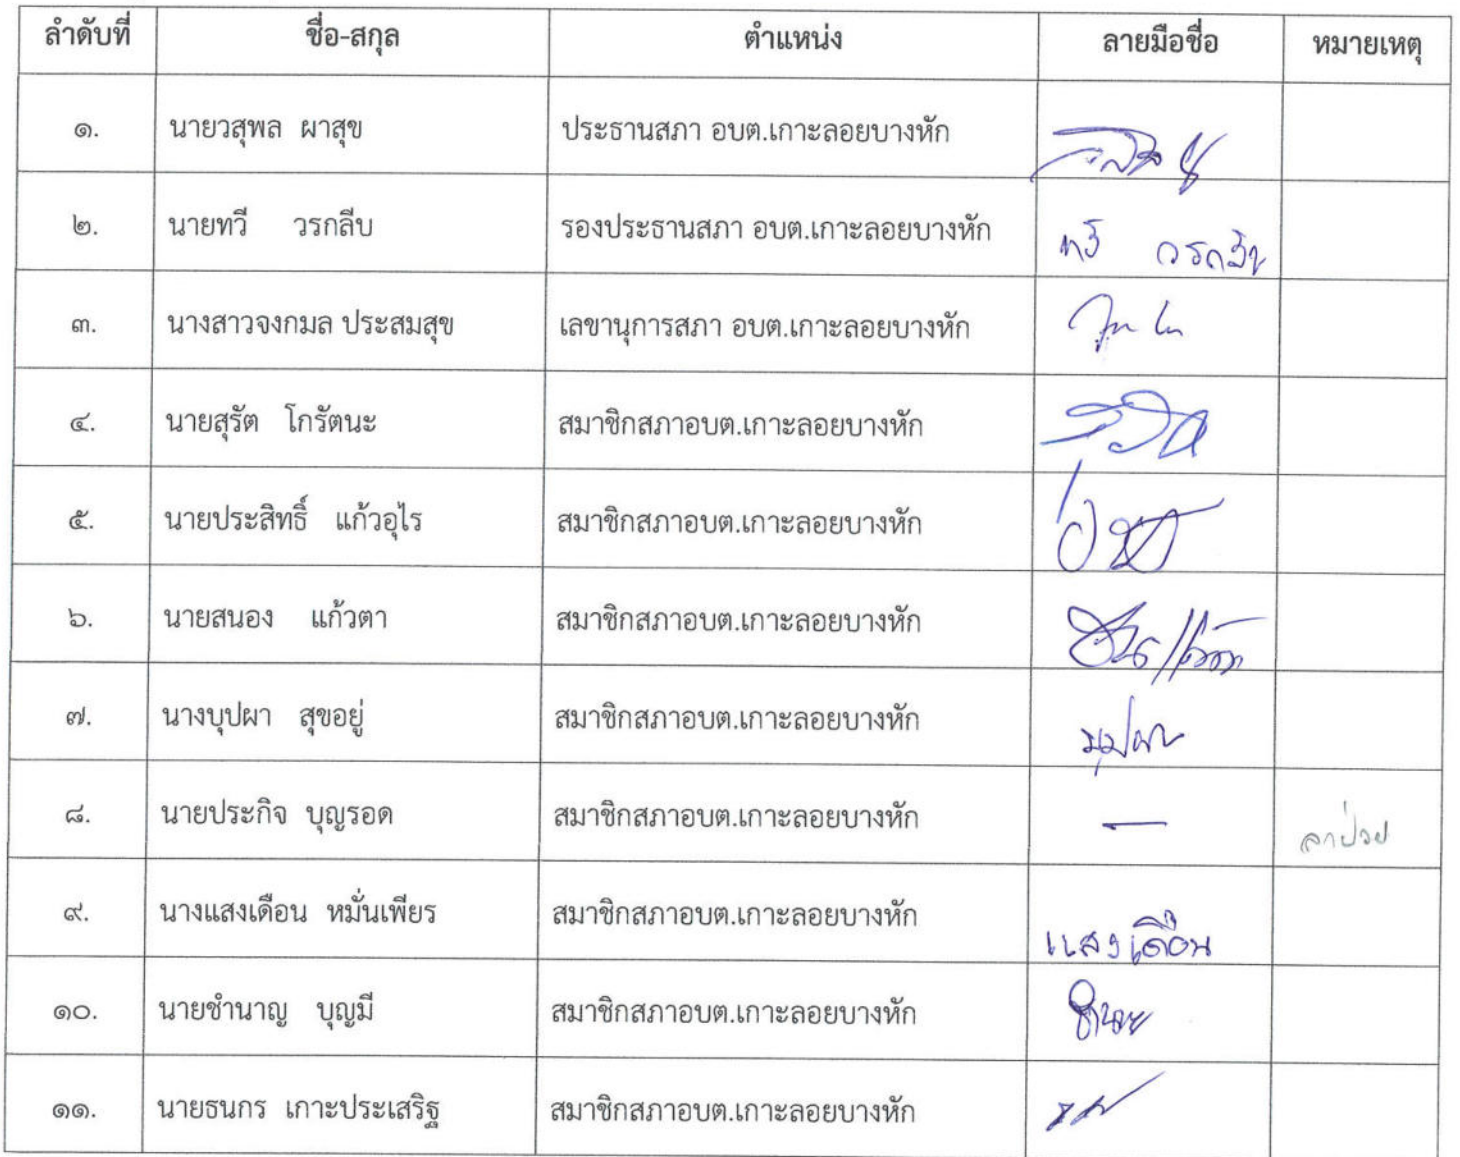 ลำดับที่ ชื่อ-สกุล ตำแหน่ง ลายมือชื่อ หมายเหตุ
๑. นายวสุพล ผาสุข ประธานสภา อบต.เกาะลอยบางหัก
๒. นายทวี วรกลีบ รองประธานสภา อบต.เกาะลอยบางหัก ทวี วรกลีบ
๓. นางสาวจงกมล ประสมสุข เลขานุการสภา อบต.เกาะลอยบางหัก
๔. นายสุรัต โกรัตนะ สมาชิกสภาอบต.เกาะลอยบางหัก
๕. นายประสิทธิ์ แก้วอุไร สมาชิกสภาอบต.เกาะลอยบางหัก
๖. นายสนอง แก้วตา สมาชิกสภาอบต.เกาะลอยบางหัก
๗. นางบุปผา สุขอยู่ สมาชิกสภาอบต.เกาะลอยบางหัก บุปผา
๘. นายประกิจ บุญรอด สมาชิกสภาอบต.เกาะลอยบางหัก — ลาป่วย
๙. นางแสงเดือน หมั่นเพียร สมาชิกสภาอบต.เกาะลอยบางหัก แสงเดือน
๑๐. นายชำนาญ บุญมี สมาชิกสภาอบต.เกาะลอยบางหัก
๑๑. นายธนกร เกาะประเสริฐ สมาชิกสภาอบต.เกาะลอยบางหัก